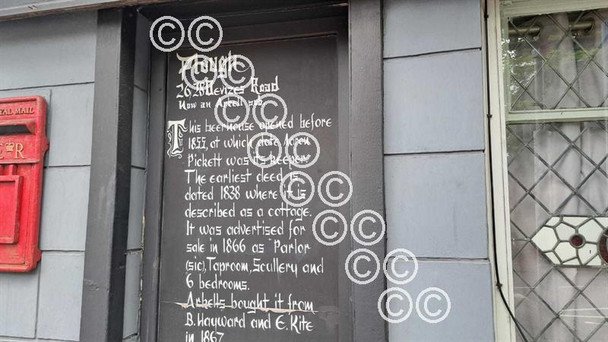 ROYAL MAIL
E R
Plough
26 Devizes Road
Now an Arkell
This beerhouse opened before
1855, at which date
Pickett was its keeper
The earliest deed is
dated 1838 where it is
described as a cottage.
It was advertised for
sale in 1866 as "Parlor
(sic), Taproom, Scullery and
6 bedrooms.
Arkells bought it from
B. Hayward and E. Kite
in 1867